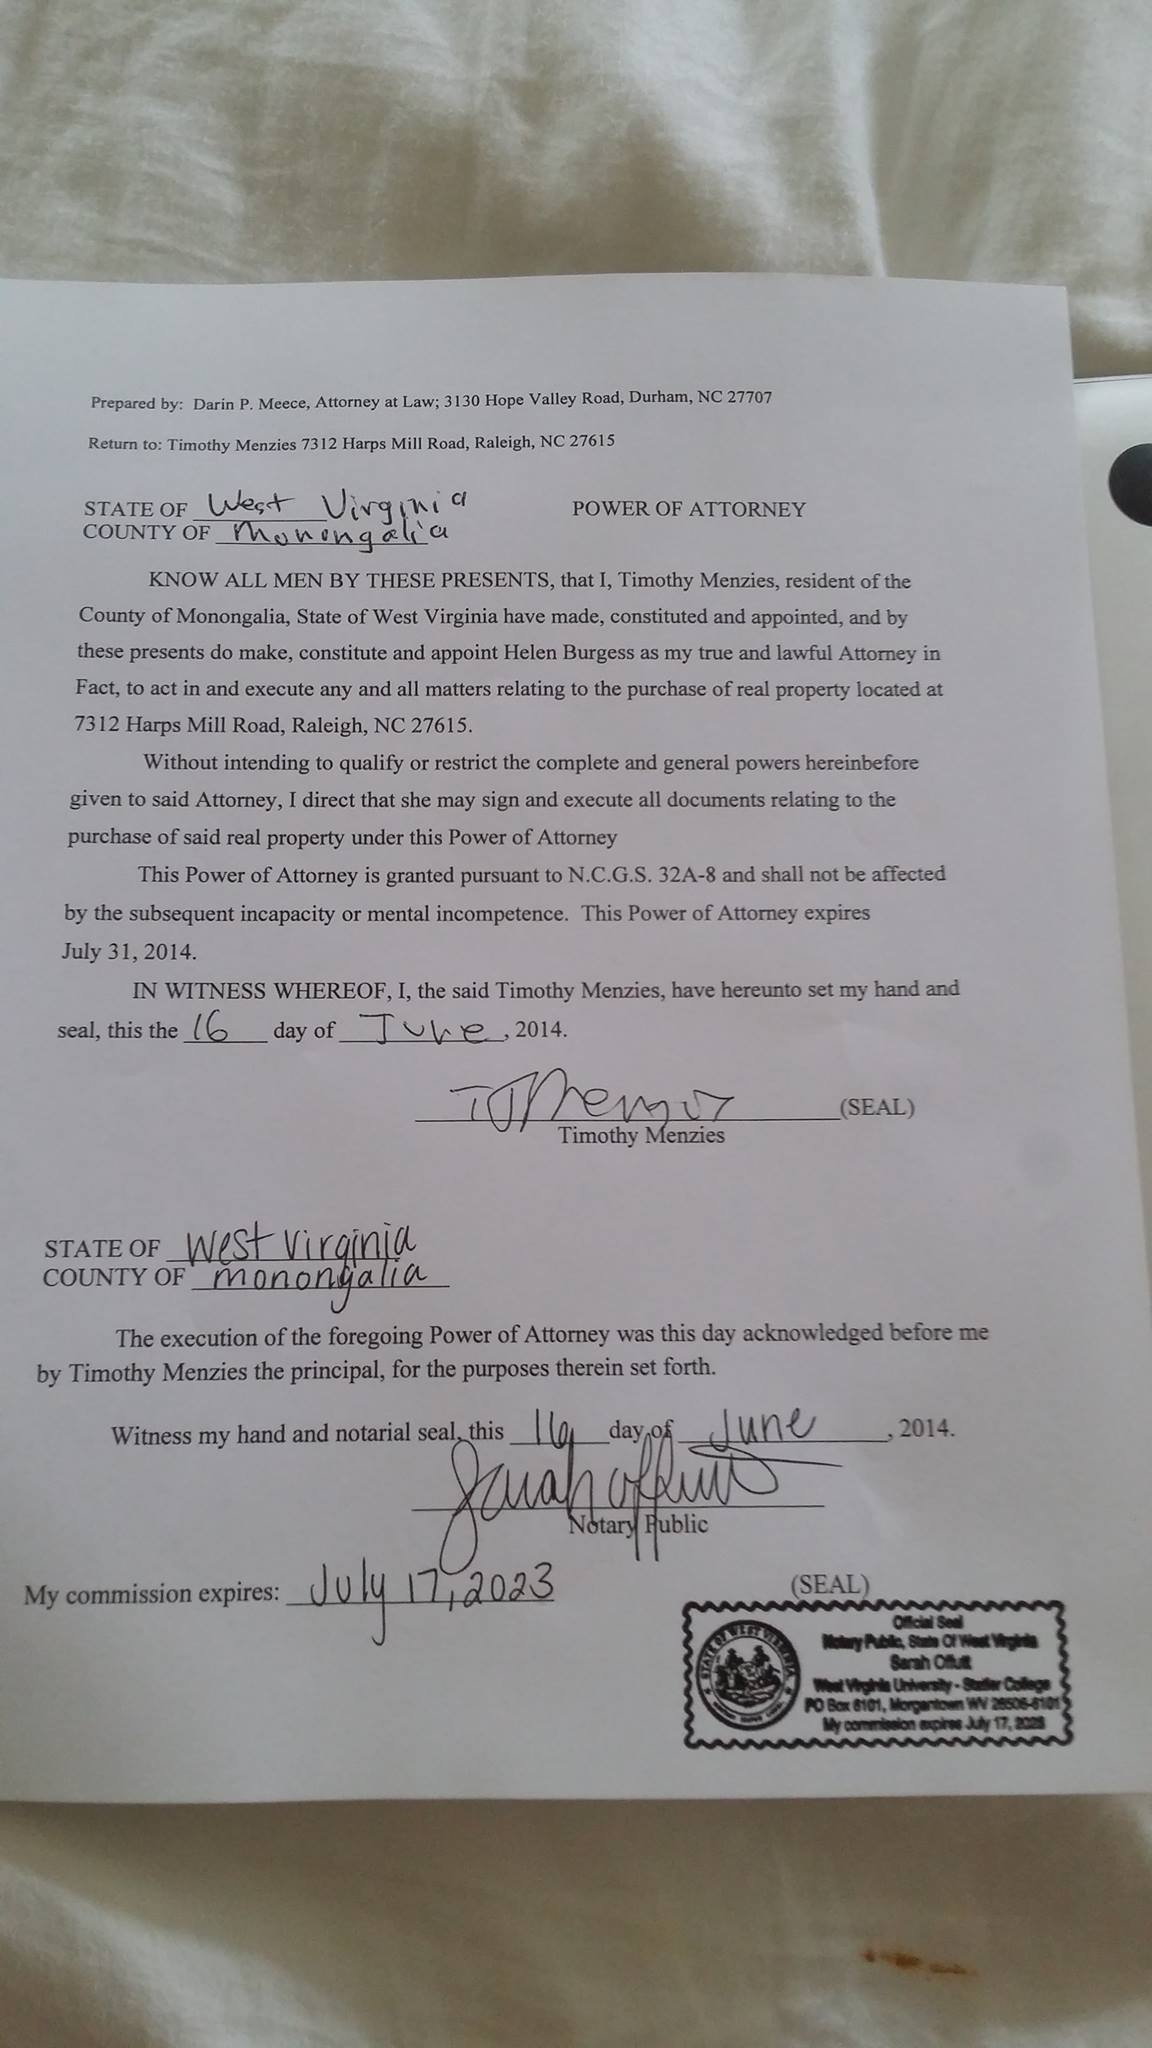 Prepared by: Darin P. Meece, Attorney at Law; 3130 Hope Valley Road, Durham, NC 27707
Return to: Timothy Menzies 7312 Harps Mill Road, Raleigh, NC 27615
STATE OF West Virginia POWER OF ATTORNEY
COUNTY OF Monongalia
KNOW ALL MEN BY THESE PRESENTS, that I, Timothy Menzies, resident of the
County of Monongalia, State of West Virginia have made, constituted and appointed, and by
these presents do make, constitute and appoint Helen Burgess as my true and lawful Attorney in
Fact, to act in and execute any and all matters relating to the purchase of real property located at
7312 Harps Mill Road, Raleigh, NC 27615.
Without intending to qualify or restrict the complete and general powers hereinbefore
given to said Attorney, I direct that she may sign and execute all documents relating to the
purchase of said real property under this Power of Attorney
This Power of Attorney is granted pursuant to N.C.G.S. 32A-8 and shall not be affected
by the subsequent incapacity or mental incompetence. This Power of Attorney expires
July 31, 2014.
IN WITNESS WHEREOF, I, the said Timothy Menzies, have hereunto set my hand and
seal, this the 16 day of June, 2014.
(SEAL)
Timothy Menzies
STATE OF West Virginia
COUNTY OF monongalia
The execution of the foregoing Power of Attorney was this day acknowledged before me
by Timothy Menzies the principal, for the purposes therein set forth.
Witness my hand and notarial seal, this 16 day of June, 2014.
Sarah Offutt
Notary Public
My commission expires: July 17, 2023
(SEAL)
STATE OF WEST VIRGINIA
Official Seal
Notary Public, State Of West Virginia
Sarah Offutt
West Virginia University - Statler College
PO Box 6101, Morgantown WV 26506-6101
My commission expires July 17, 2023